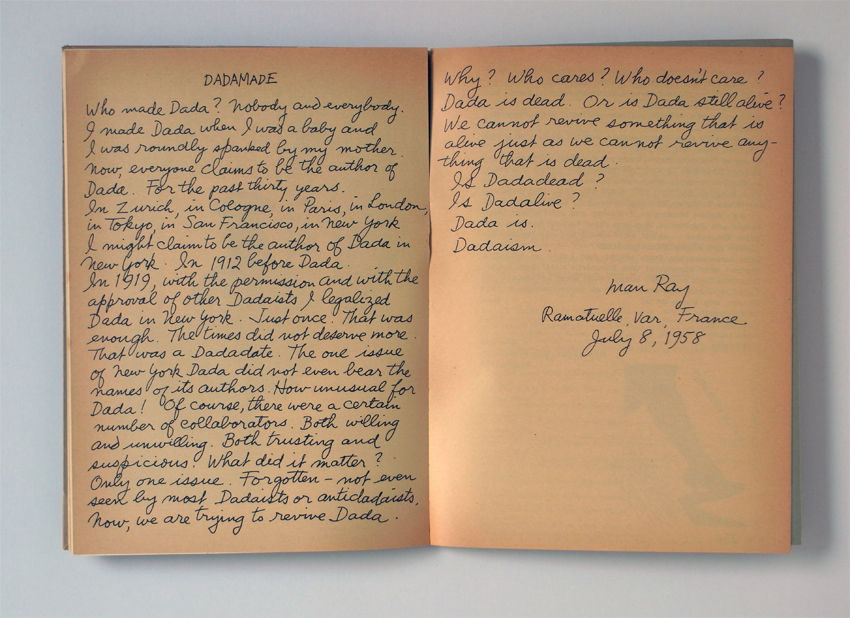 DADAMADE
Who made Dada? Nobody and everybody.
I made Dada when I was a baby and
I was roundly spanked by my mother.
Now, everyone claims to be the author of
Dada. For the past thirty years.
In Zurich, in Cologne, in Paris, in London,
in Tokyo, in San Francisco, in New York
I might claim to be the author of Dada in
New York. In 1912 before Dada.
In 1919, with the permission and with the
approval of other Dadaists I legalized
Dada in New York. Just once. That was
enough. The times did not deserve more.
That was a Dadadate. The one issue
of New York Dada did not even bear the
names of its authors. How unusual for
Dada! Of course, there were a certain
number of collaborators. Both willing
and unwilling. Both trusting and
suspicious. What did it matter?
Only one issue. Forgotten - not even
seen by most Dadaists or antidadaists.
Now, we are trying to revive Dada.
Why? Who cares? Who doesn't care?
Dada is dead. Or is Dada still alive?
We cannot revive something that is
alive just as we cannot revive any-
thing that is dead.
Is Dadadead?
Is Dadalive?
Dada is.
Dadaism.
Man Ray
Ramatuelle, Var, France
July 8, 1958